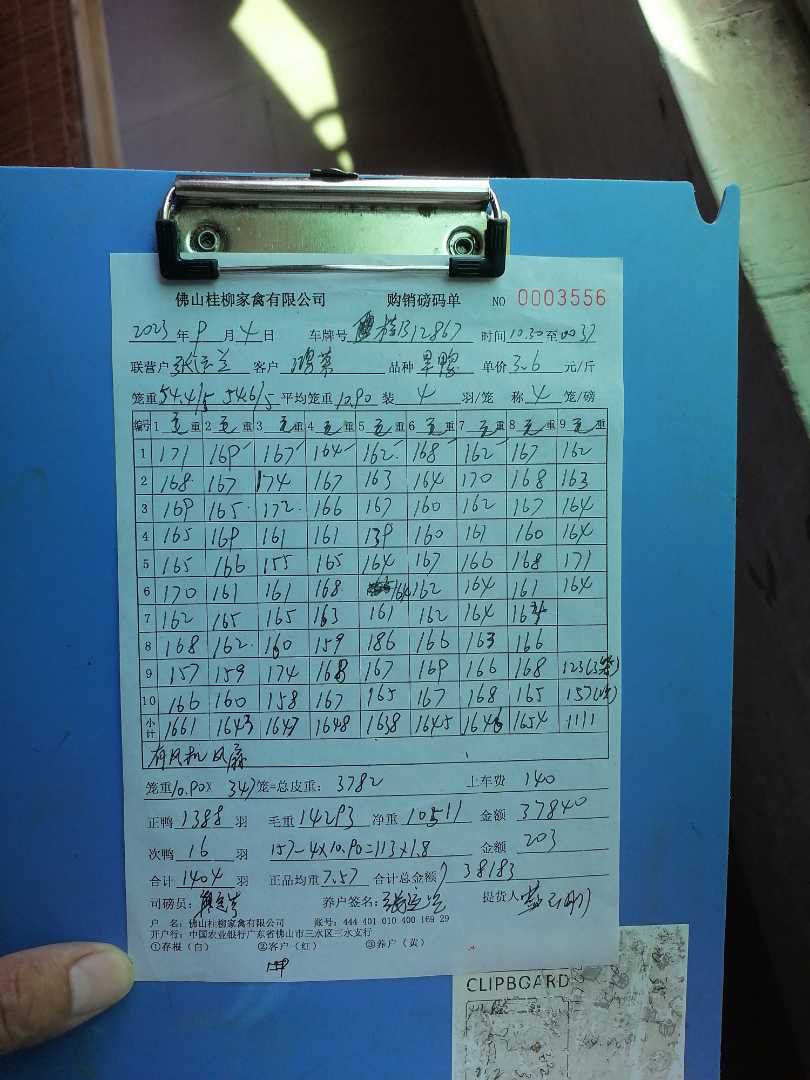 佛山桂柳家禽有限公司 购销磅码单 NO 0003556
2023年9月4日 车牌号 桂B12867 时间10.30至 37
联营户 客户 品种 单价3.6元/斤
笼重54.4/5 54.6/5 平均笼重10.90 装4羽/笼 称4笼/磅
编号 1毛重 2毛重 3毛重 4毛重 5毛重 6毛重 7毛重 8毛重 9毛重
1 171 169 167 164 162 168 162 167 162
2 168 167 174 167 163 164 170 168 163
3 169 165 172 166 167 160 162 167 164
4 165 169 161 161 139 160 161 160 164
5 165 166 155 165 164 167 166 168 171
6 170 161 161 168 164 162 164 161 164
7 162 165 165 163 161 162 164 164
8 168 162 160 159 186 166 163 166
9 157 159 174 168 167 169 166 168 123(3笼)
10 166 160 158 167 165 167 168 165 157
小计 1661 1643 1647 1648 1638 1645 1646 1654 1111
有风机 风扇
笼重10.90× 347笼=总皮重: 3782 上车费 140
正鸭1388羽 毛重14293 净重10511 金额37840
次鸭16羽 157-4×10.90=113×1.8 金额203
合计1404羽 正品均重7.57 合计总金额38183
司磅员: 养户签名: 提货人
户 名: 佛山桂柳家禽有限公司 账号: 444 401 010 400 169 29
开户行: 中国农业银行广东省佛山市三水区三水支行
①存根（白） ②客户（红） ③养户（黄）
CLIPBOARD